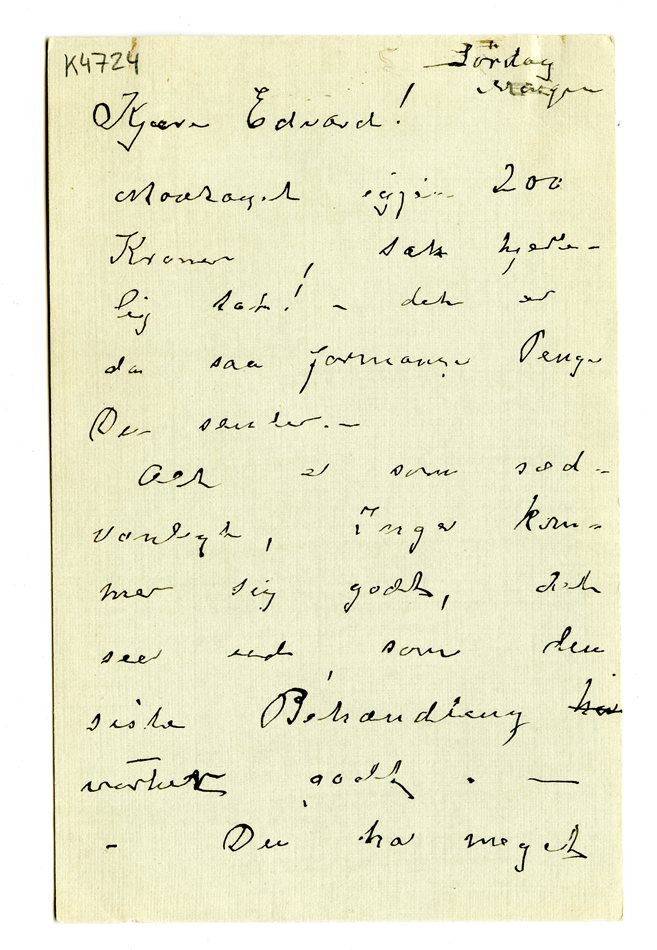 K4724
Lördag
Morgen
Kjære Edvard!
Modtaget igjen 200
Kroner, tak hjerte-
lig tak! – det er
da saa formange Penge
Du sender. –
Alt er som sæd-
vanligt, Inger kom-
mer sig godt, det
seer ud, som den
siste Behandling har
virket godt. —
– Du ha meget